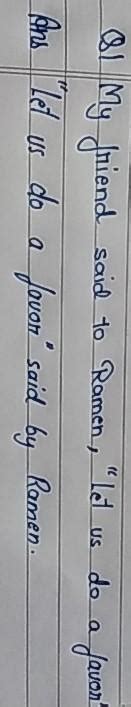 Q1 My friend said to Ramen, "Let us do a favor"
Ans "Let us do a favor" said by Ramen.